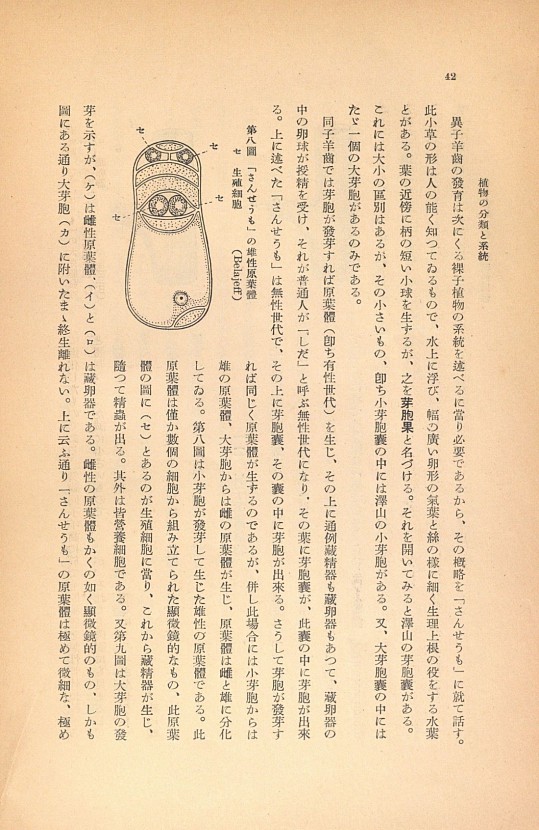 42
植物の分類と系統
異子羊齒の發育は次にくる裸子植物の系統を述べるに當り必要であるから、その槪略を「さんせうも」に就て話す。
此小草の形は人の能く知つてゐるもので、水上に浮び、幅の廣い卵形の氣葉と絲の樣に細く生理上根の役をする水葉
とがある。葉の近傍に柄の短い小球を生するが、之を芽胞果と名づける。それを開いてみると澤山の芽胞囊がある。
これには大小の區別はあるが、その小さいもの、卽ち小芽胞囊の中には澤山の小芽胞がある。又、大芽胞囊の中には
たゞ一個の大芽胞があるのみである。
同子羊齒では芽胞が發芽すれば原葉體（卽ち有性世代）を生じ、その上に通例藏精器も藏卵器もあつて、藏卵器の
中の卵球が授精を受け、それが普通人が「しだ」と呼ぶ無性世代になり、その葉に芽胞囊が、此囊の中に芽胞が出來
る。上に述べた「さんせうも」は無性世代で、その上に芽胞囊、その囊の中に芽胞が出來る。さうして芽胞が發芽す
れば同じく原葉體が生ずるのであるが、併し此場合には小芽胞からは
雄の原葉體、大芽胞からは雌の原葉體が生じ、原葉體は雌と雄に分化
してゐる。第八圖は小芽胞が發芽して生じた雄性の原葉體である。此
原葉體は僅か數個の細胞から組み立てられた顯微鏡的なもの、此原葉
體の圖に（セ）とあるのが生殖細胞に當り、これから藏精器が生じ、
隨つて精蟲が出る。其外は皆營養細胞である。又第九圖は大芽胞の發
第八圖 「さんせうも」の雄性原葉體
セ 生殖細胞
(Belajeff)
セ
セ
セ
セ
芽を示すが、（ケ）は雌性原葉體、（イ）と（ロ）は藏卵器である。雌性の原葉體もかくの如く顯微鏡的のもの、しかも
圖にある通り大芽胞（カ）に附いたまゝ終生離れない。上に云ふ通り「さんせうも」の原葉體は極めて微細な、極め